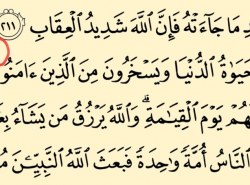 مَا جَآءَتْهُ فَإِنَّ ٱللَّهَ شَدِيدُ ٱلْعِقَابِ ٢١١
ٱلدُّنْيَا وَيَسْخَرُونَ مِنَ ٱلَّذِينَ ءَامَنُوا۟
يَوْمَ ٱلْقِيَـٰمَةِ ۗ وَٱللَّهُ يَرْزُقُ مَن يَشَآءُ
ٱلنَّاسُ أُمَّةً وَٰحِدَةً فَبَعَثَ ٱللَّهُ ٱلنَّبِيِّـۧنَ